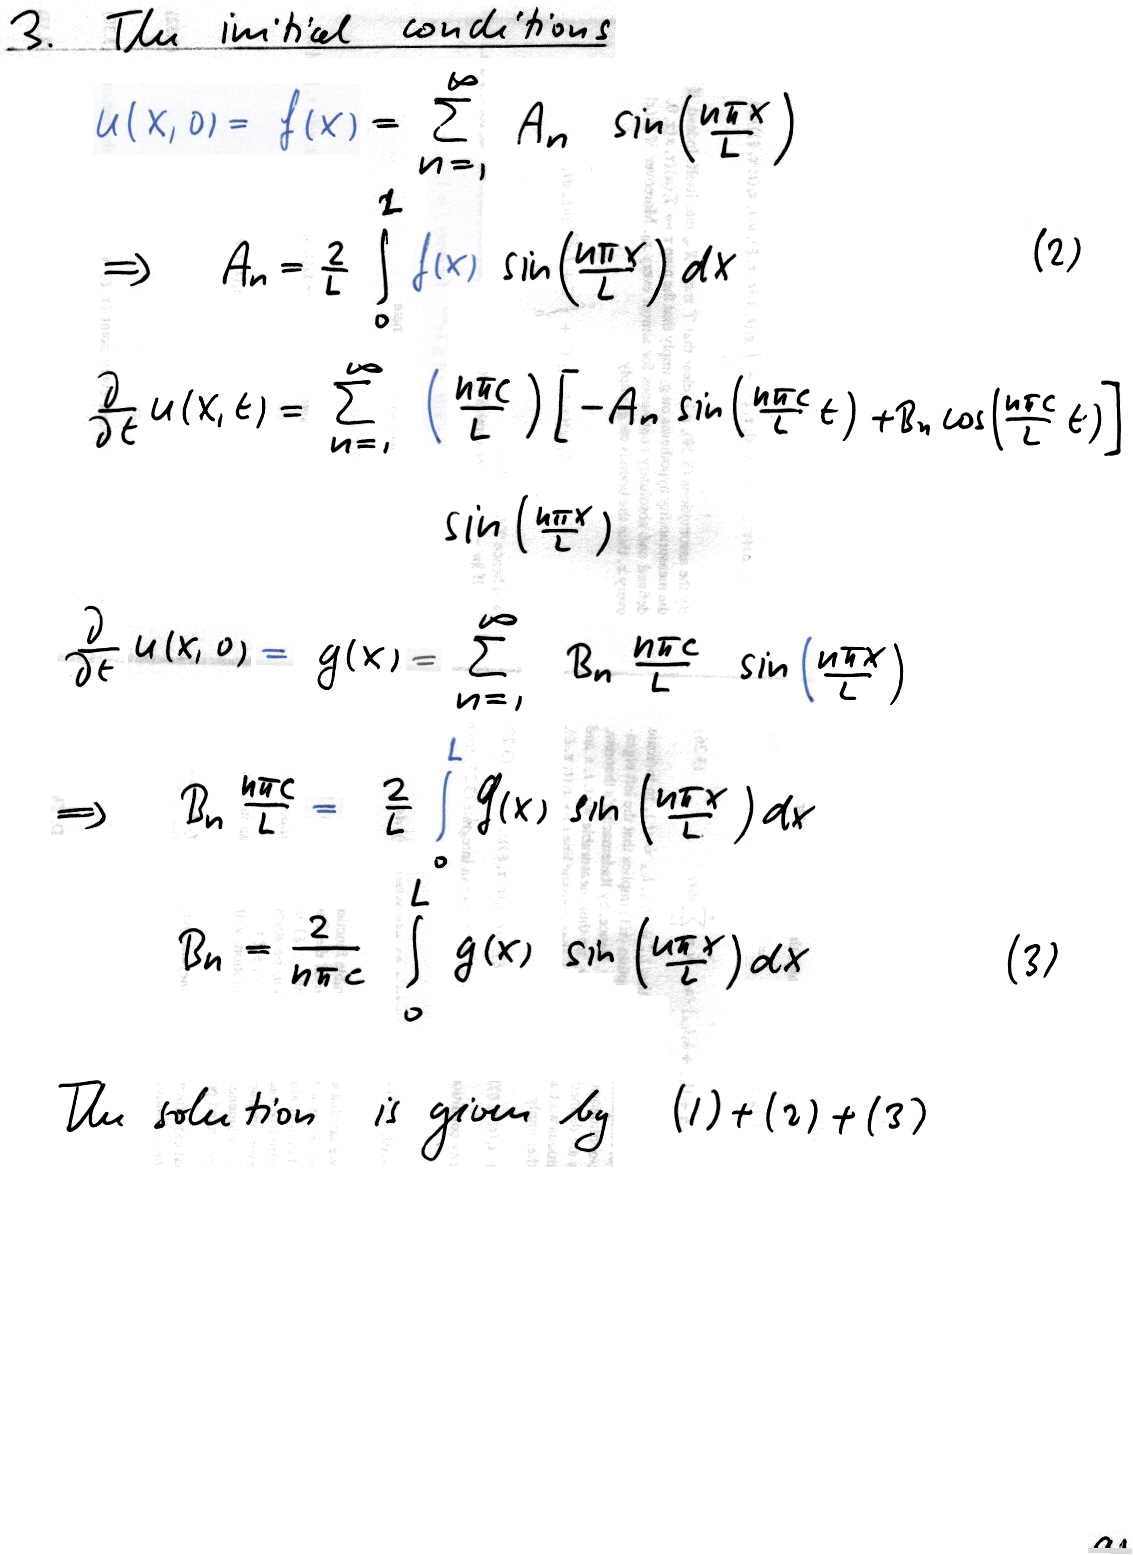 3. The initial conditions
u(x, 0) = f(x) = ∑_{n=1}^{∞} A_n sin(nπx/L)
⇒ A_n = 2/L ∫_0^L f(x) sin(nπx/L) dx (2)
∂/∂t u(x, t) = ∑_{n=1}^{∞} (nπc/L) [-A_n sin(nπc/L t) + B_n cos(nπc/L t)]
sin(nπx/L)
∂/∂t u(x, 0) = g(x) = ∑_{n=1}^{∞} B_n nπc/L sin(nπx/L)
⇒ B_n nπc/L = 2/L ∫_0^L g(x) sin(nπx/L) dx
B_n = 2/(nπc) ∫_0^L g(x) sin(nπx/L) dx (3)
The solution is given by (1)+(2)+(3)